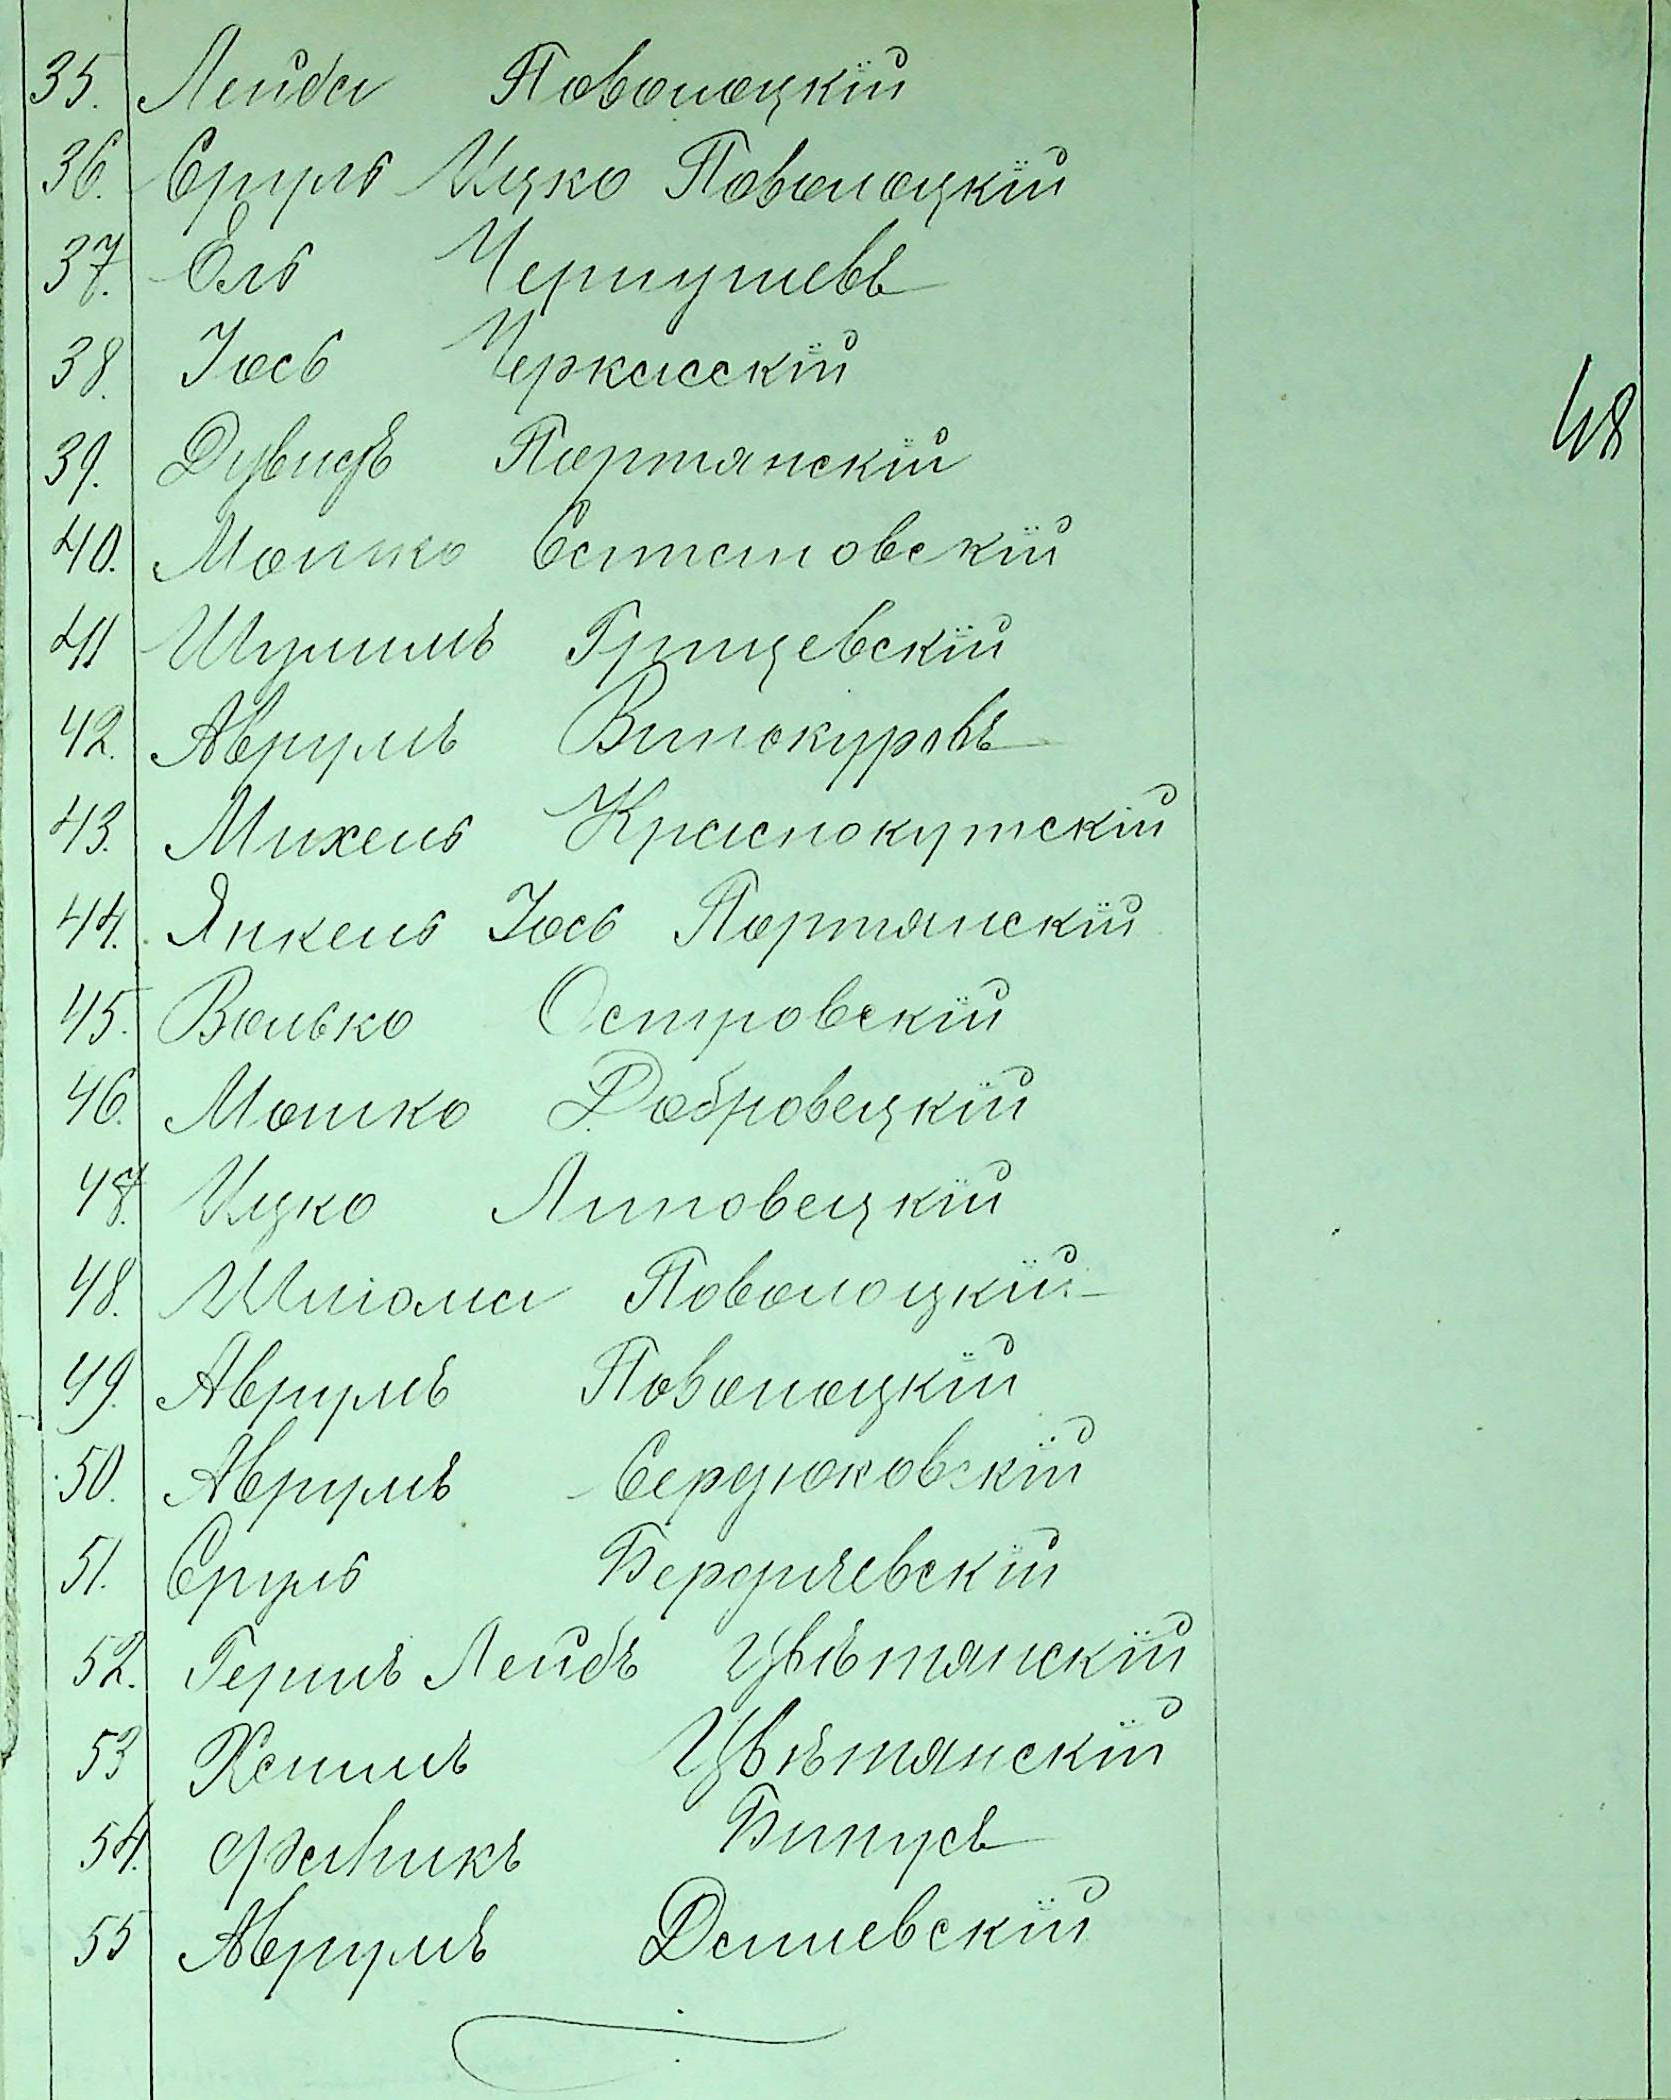 35. Лейба Поволоцкій
36. Сруль Ицко Поволоцкій
37. Ель Чернушевъ
38. Іось Черкасскій
39. Дувидъ Портянскій
40. Мошко Сатановскій
41 Шулимъ Грицевскій
42. Аврумъ Винокуровъ
43. Михель Краснокутскій
44. Янкель Іось Портянскій
45. Волько Островскій
46. Мошко Добровецкій
47. Ицко Липовецкій
48. Шліома Поволоцкій
49. Аврумъ Поволоцкій
50. Аврумъ Сердюковскій
51. Сруль Бердичевскій
52. Гершъ Лейбъ Цвѣтянскій
53 Хаимъ Цвѣтянскій
54. Файвикъ Бинусъ
55 Аврумъ Дашевскій
48